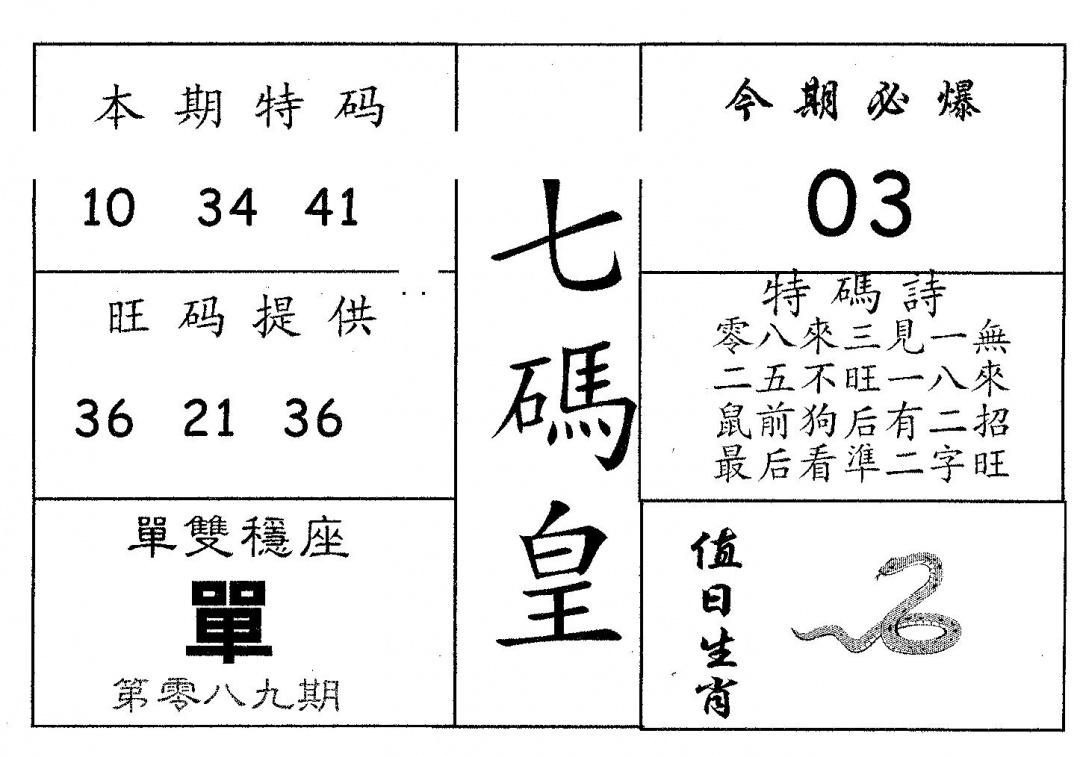 本期特码
10 34 41
旺码提供
36 21 36
單雙穩座
單
第零八九期
七
碼
皇
今期必爆
03
特碼詩
零八來三見一無
二五不旺一八來
鼠前狗后有二招
最后看準二字旺
值
日
生
肖